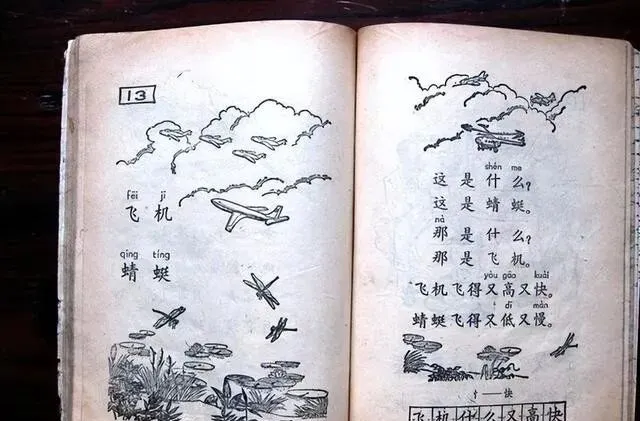 13
fēi jī
飞 机
qīng tíng
蜻 蜓
shén me
这 是 什 么？
这 是 蜻 蜓。
nà
那 是 什 么？
那 是 飞 机。
yòu gāo kuài
飞机飞得又高又快。
dī màn
蜻蜓飞得又低又慢。
忄——快
飞机什么又高快